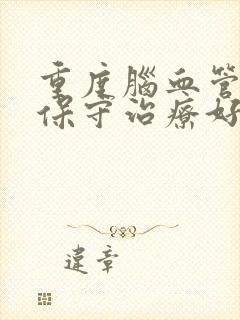 重度腦血管
保守治療好
違章